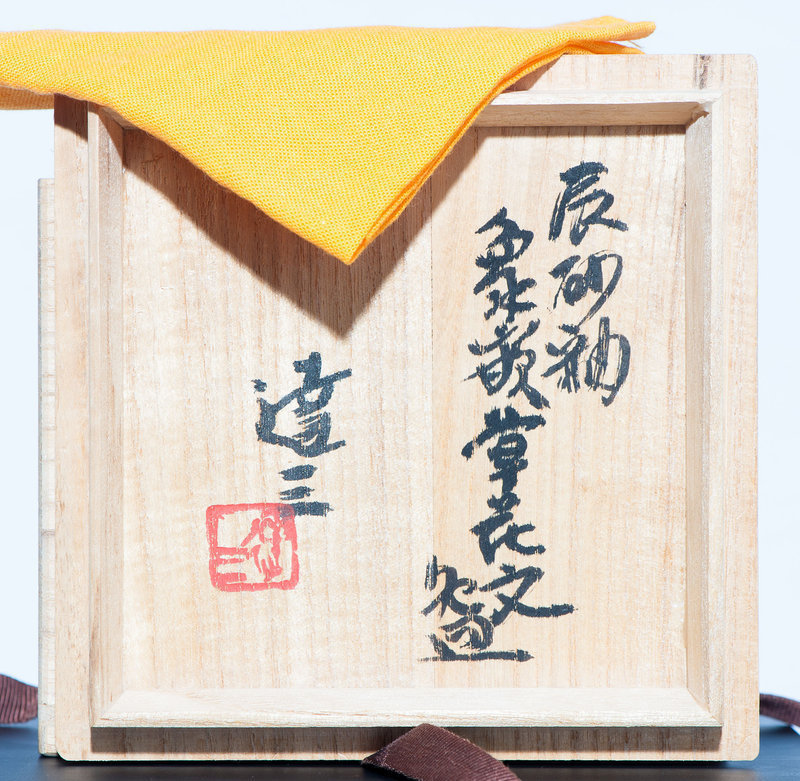 辰砂釉
象嵌草花文
盌
達三